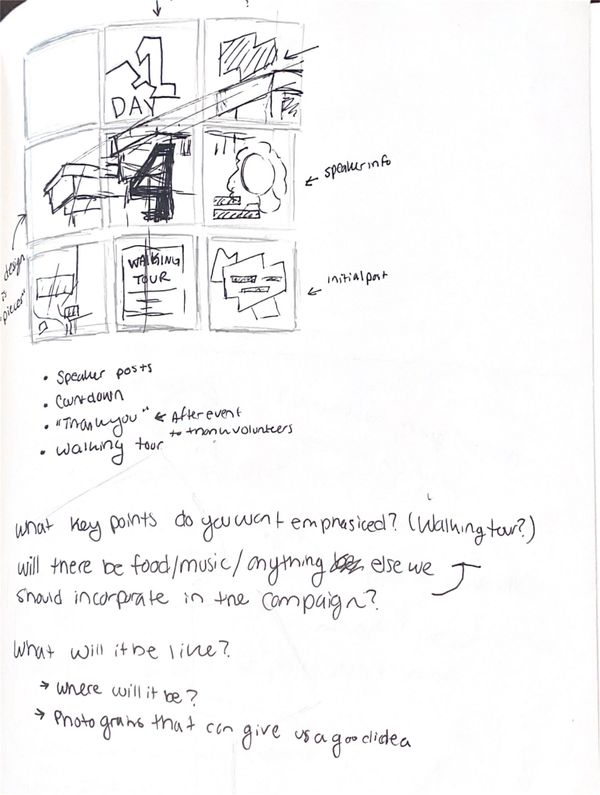 1
DAY
4
speaker info
WALKING
TOUR
design
"pieces"
initial post
• Speaker posts
• Countdown
• "Thank you" ← After event
to thank volunteers
• Walking tour
What key points do you want emphasiced? (Walking tour?)
will there be food/music/anything else we
should incorporate in the campaign?
What will it be like?
→ where will it be?
→ Photograhs that can give us a good idea